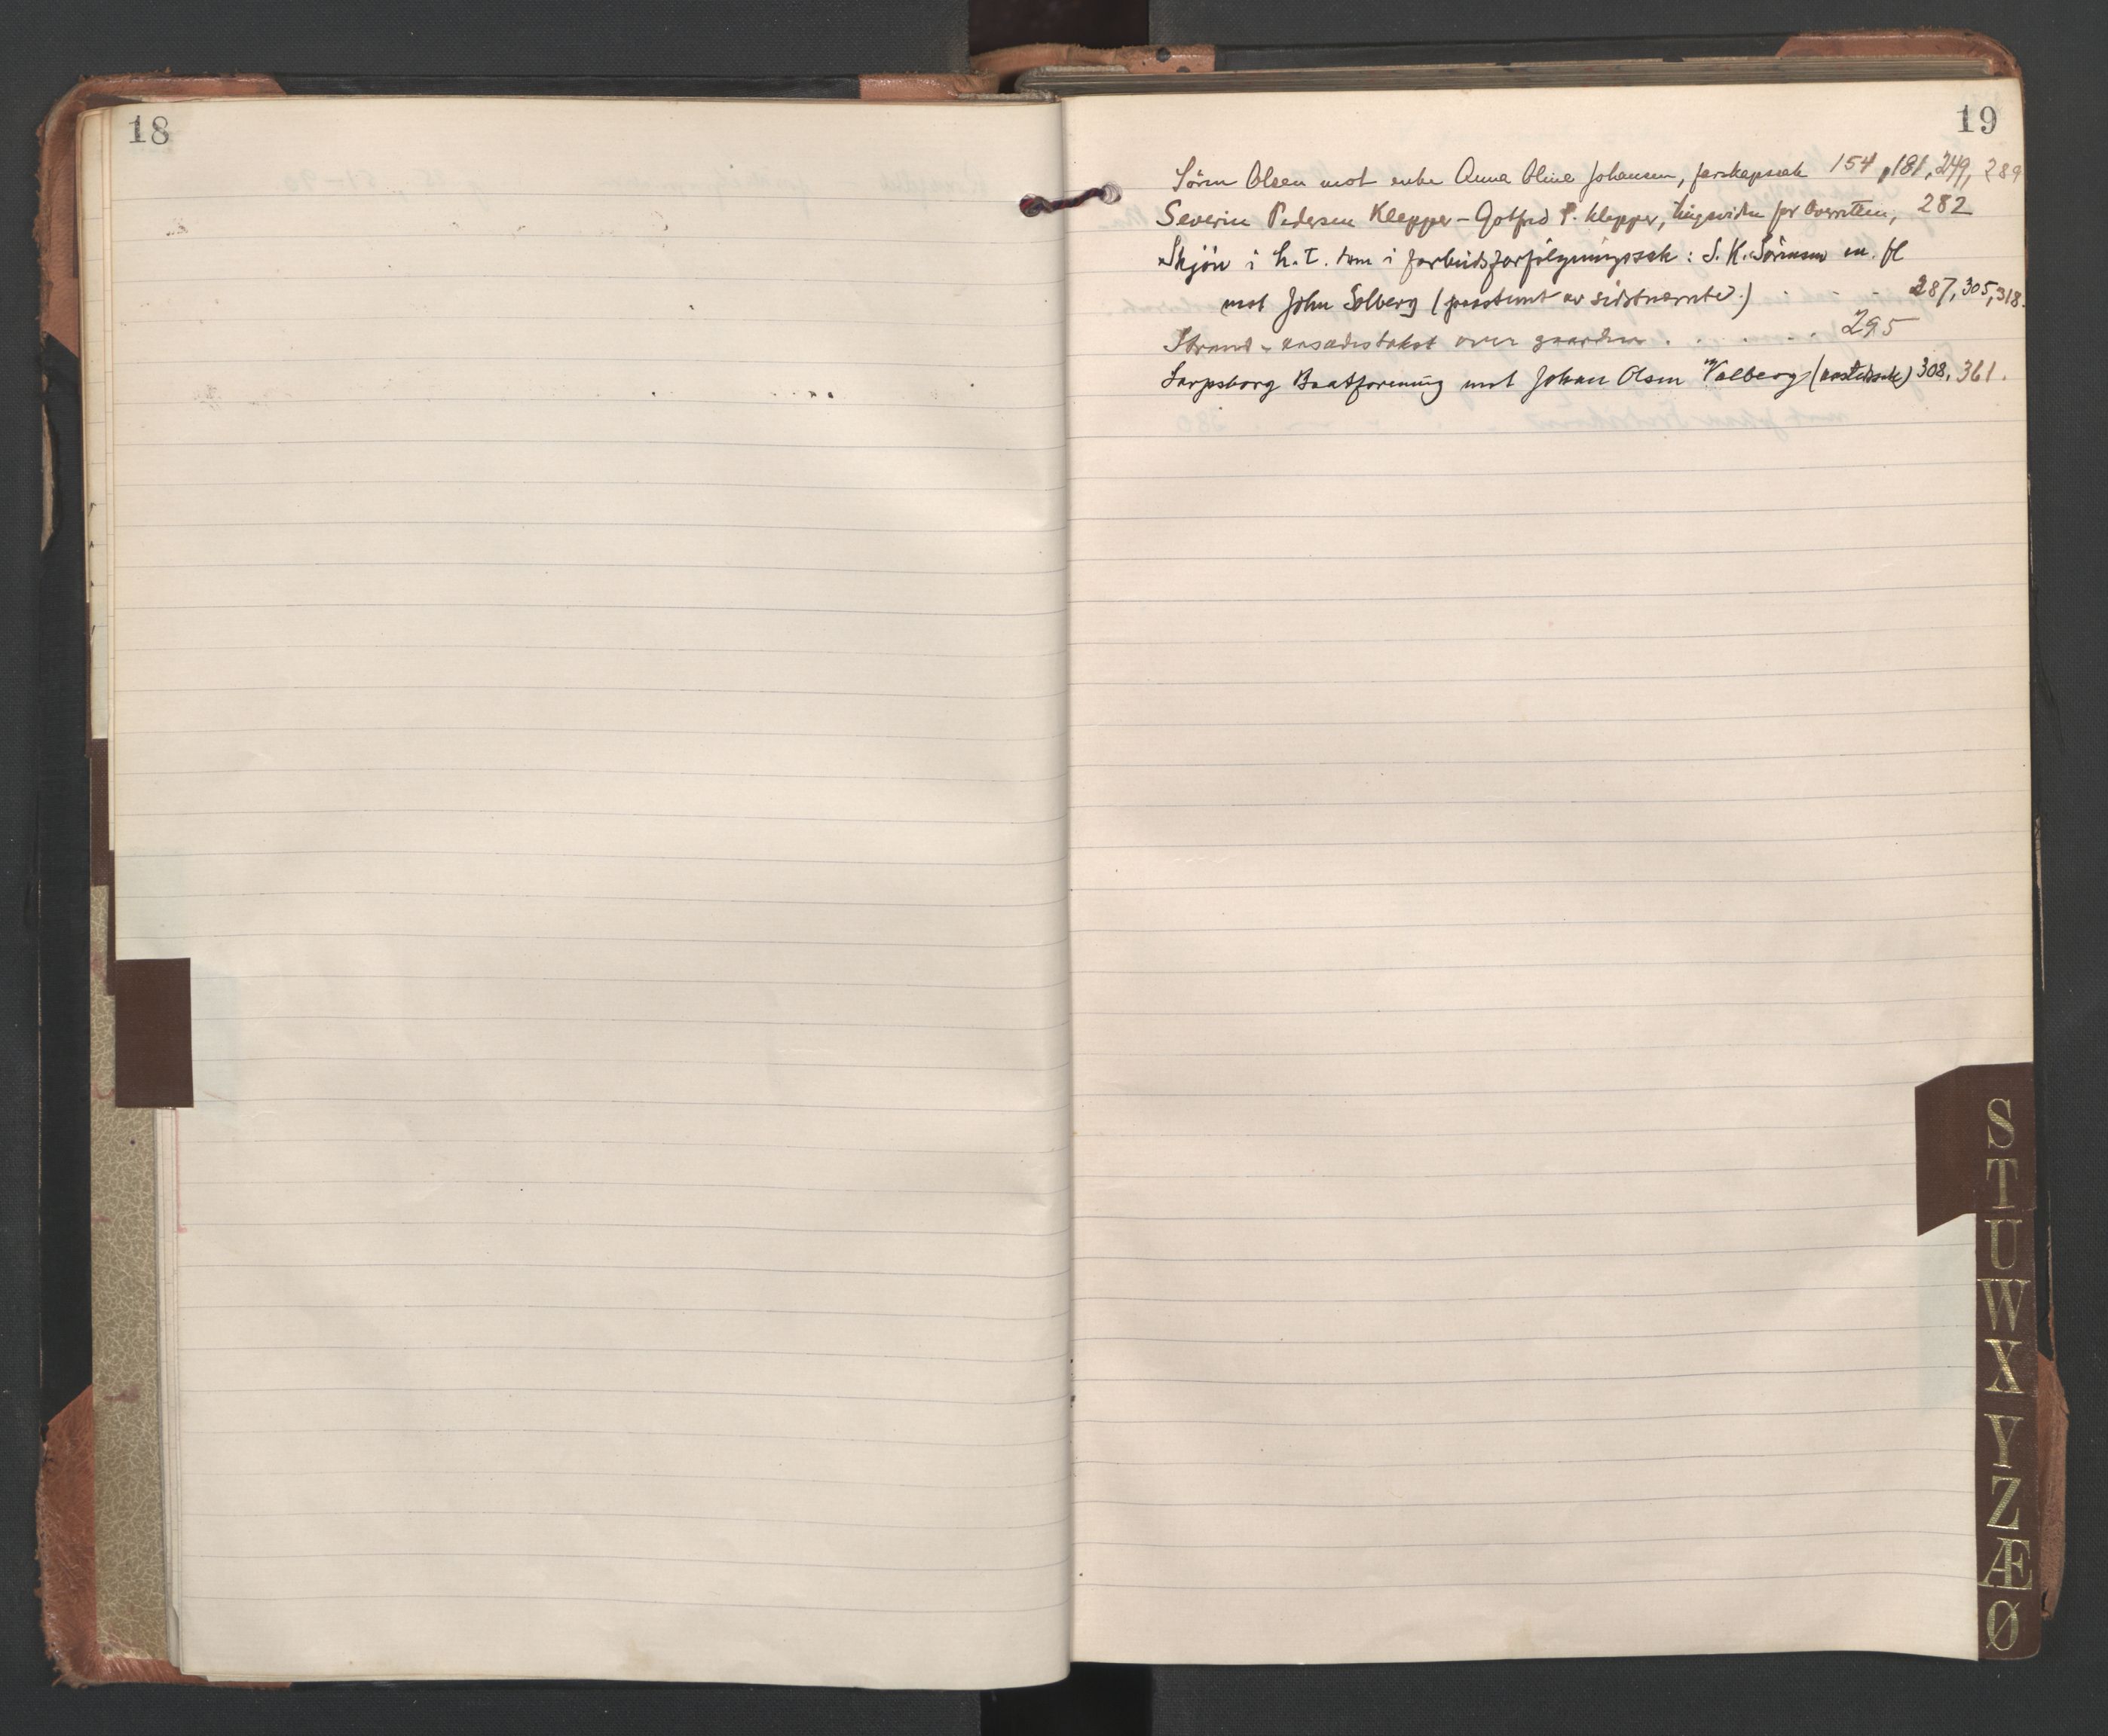 18
19
Sören Olsen mot enke Anna Oline Johansen, farskapssak 154, 181, 249, 289
Severin Pedersen Klepper - Gotfred P. Klepper, tingsvidne for Overretten, 282
Skjön i h. t. dom i forbudsforfölgningssak: S. K. Sörensen m. fl
mot John Solberg (paastemt av sidstnævnte.) . . . 287, 305, 318.
Strand - aasædestakst over gaarden . . . . . 295
Sarpsborg Baatforening mot Johan Olsen Valberg 308, 361.
S
T
U
W
X
Y
Z
Æ
Ø